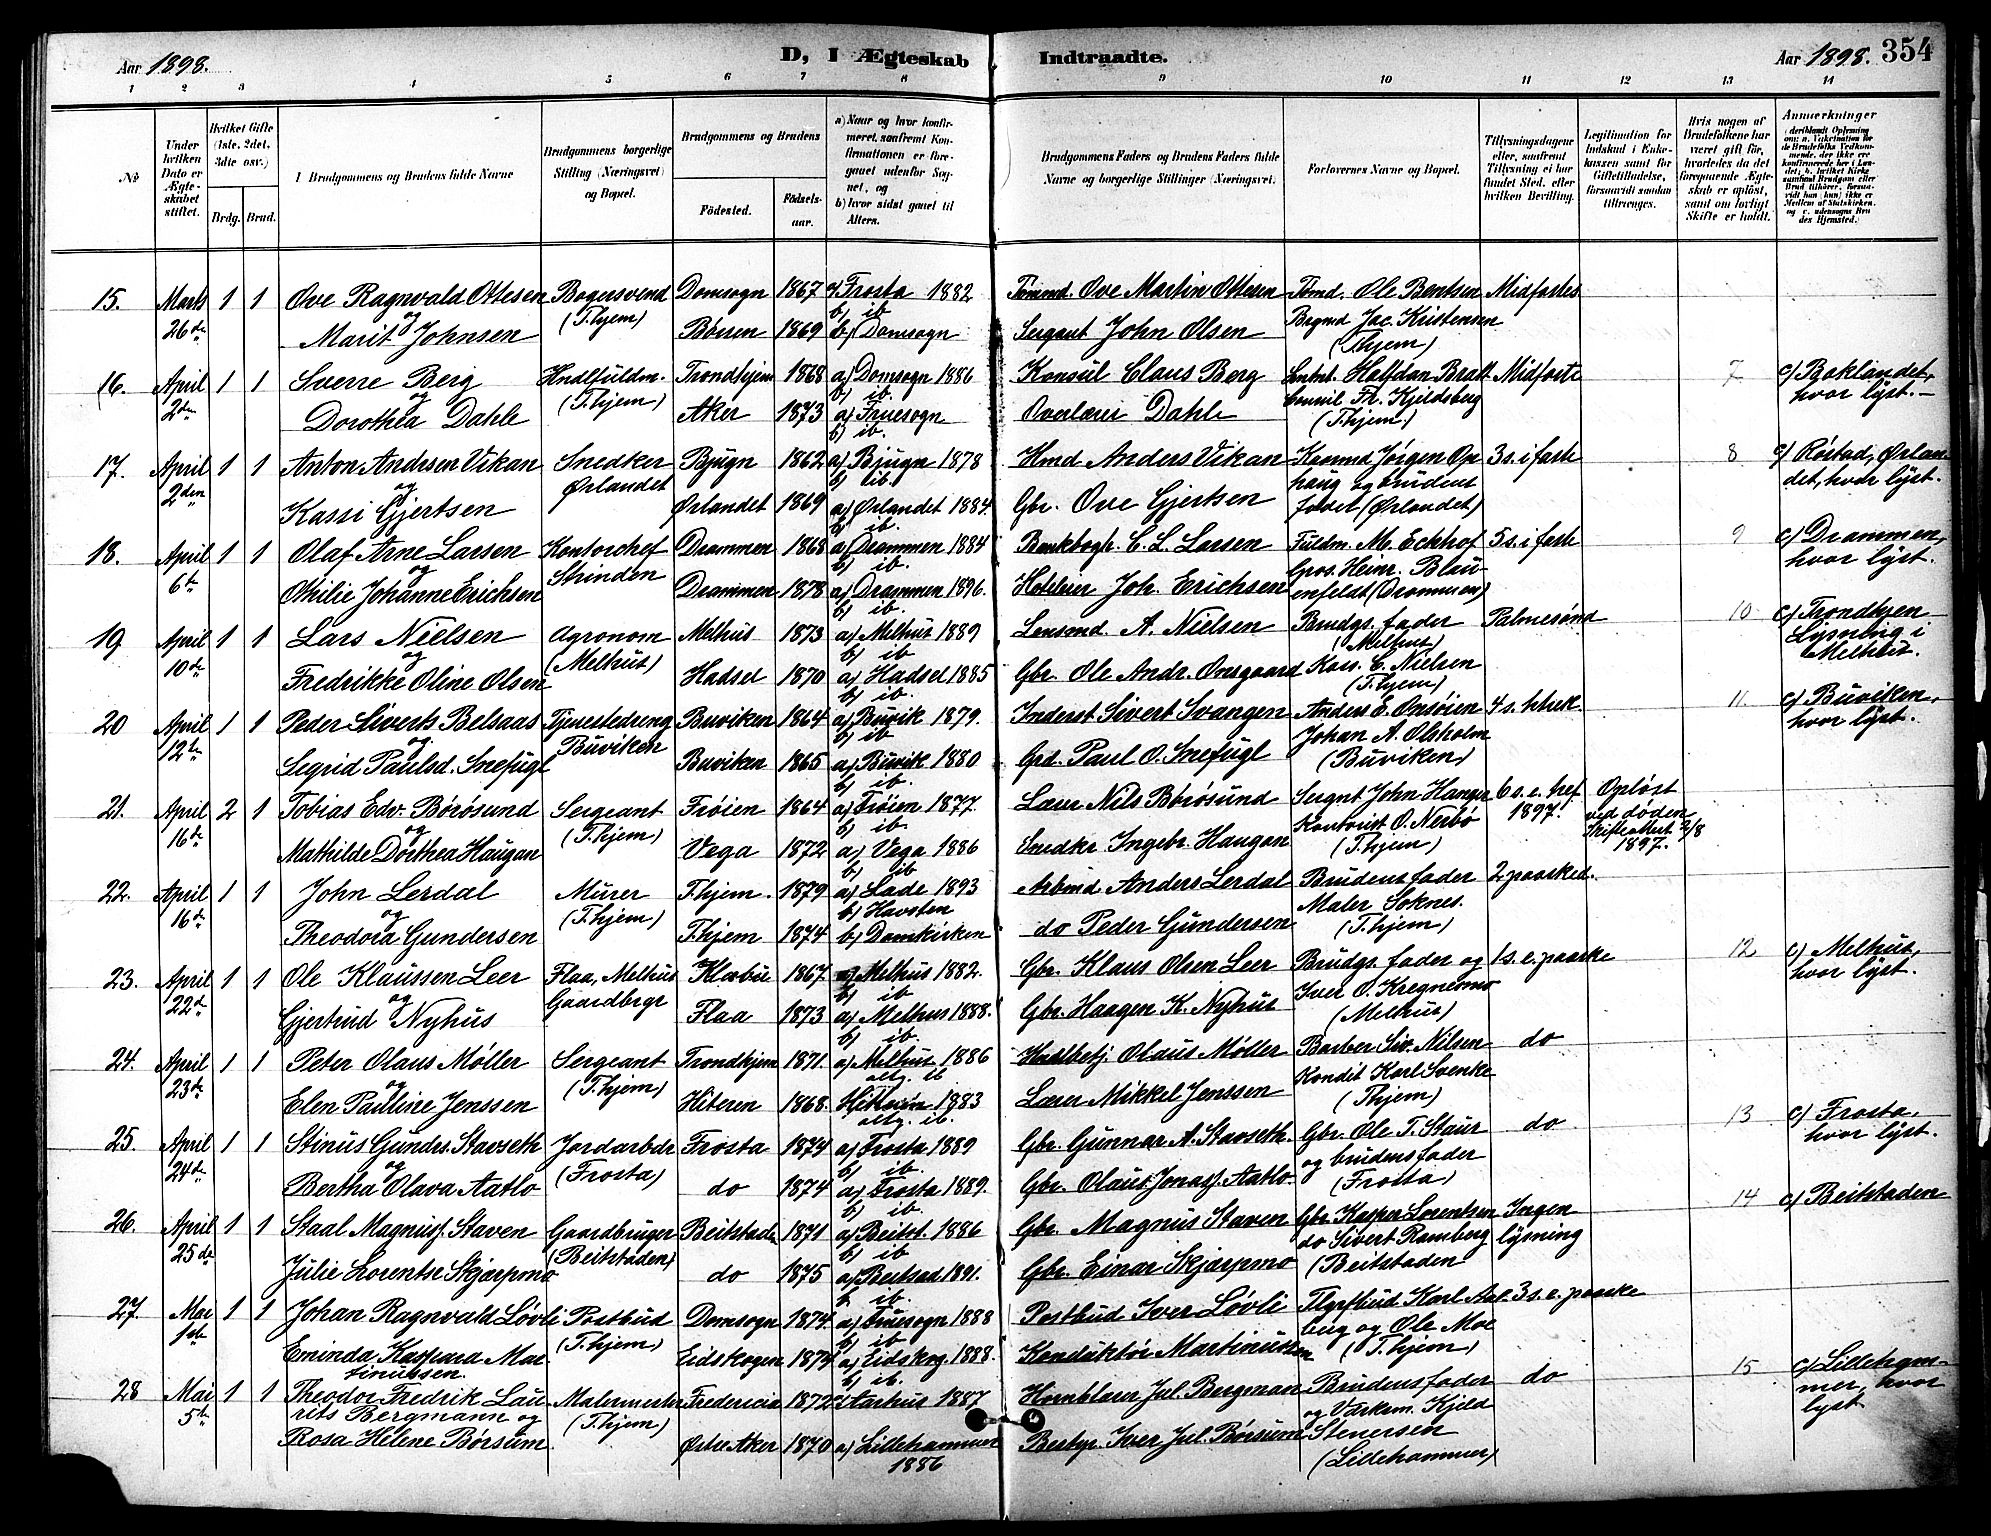 Aar 1898. D, I Ægteskab Indtraadte. Aar 1898. 354
1 2 3 4 5 6 7 8 9 10 11 12 13 14
№
Under hvilken Dato er Ægteskabet stiftet.
Hvilket Gifte (1ste, 2det, 3die osv.)
Brdg. Brud.
1 Brudgommens og Brudens fulde Navne
Brudgommens borgerlige Stilling (Næringsvei) og Bopæl.
Brudgommens og Brudens
Fødested. Fødselsaar.
a) Naar og hvor konfirmeret, samfremt Konfirmationen er foregaaet udenfor Sognet, og
b) hvor sidst gaaet til Alters.
Brudgommens Faders og Brudens Faders fulde Navne og borgerlige Stillinger (Næringsvei)
Forlovernes Navne og Bopæl.
Tillysningsdagene eller, samfremt Tillysning ei har fundet Sted, efter hvilken Bevilling.
Legitimation for Indskud i Enkekassen samt for Giftetilladelse, forsaavidt saadan tiltrænges.
Hvis nogen af Brudefolkene har været gift før, hvorledes da det foregaaende Ægteskab er opløst, samt om lovligt Skifte er holdt.
Anmærkninger
15. Marts 26de 1 1 Ove Ragnvald Ottesen Bogersvend Domsogn 1867 a) Frosta 1882 Tømmd. Ove Martin Ottesen Tømd. Ole Bentsen Midfaste
og (T.hjem) b) ib
Marit Johnsen Børsen 1869 b) Domsogn Sergant John Olsen Bogmd Jac. Kristensen
(T.hjem)
16. April 2den 1 1 Sverre Berg Hndlfuldm. Trondhjem 1868 a) Domsogn 1886 Konsul Claus Berg Halfdan Bratt Midfaste 7 c) Baklandet,
og (T.hjem) b) ib. Consul Fr. Kjeldsberg hvor lyst.
Dorothea Dahle Aker 1873 a) Fruesogn Overlærer Dahle (T.hjem)
b) ib.
17. April 2den 1 1 Anton Andrsen Vikan Snedker Bjugn 1862 a) Bjugn 1878 Hmd Anders Vikan Jørgen Op 3 s. i faste 8 c) Røstad, Ørlan-
og Ørlandet b) ib. haug og brudens det, hvor lyst.
Kassi Gjertsen Ørlandet 1869 a) Ørlandet 1884 Gbr. Ove Gjertsen (Ørlandet)
b) ib.
18. April 6te 1 1 Olaf Arne Larsen Kontorchef Drammen 1868 a) Drammen 1884 Bankbogh. C. L. Larsen Fuldm. M. Eckhof 5 s. i faste 9 c) Drammen,
og Strinden b) ib. Gros. Heinr. Blau- hvor lyst.
Othilie Johanne Ericksen Drammen 1878 a) Drammen 1896. Hoteleier Joh. Erichsen enfeldt (Drammen)
b) ib.
19 April 10de 1 1 Lars Nielsen Agronom Melhus 1873 a) Melhus 1889 Lensmd. A. Nielsen Brudgs. fader Palmesønd 10 c) Trondhjem
og (Melhus) b) ib (Melhus) Lysning i
Fredrikke Oline Olsen Hadsel 1870 a) Hadsel 1885 Gbr. Ole Andr. Onsgaard Kass. C. Nielsen Melhus.
b) ib. (T.hjem)
20 April 12te 1 1 Peder Siverts Belsaas Tjenestedreng Buviken 1864 a) Buvik 1879. Inderst Sivert Svangen Anders E. Onsøien 4 s. i 11 c) Buviken,
og Buviken b) ib Johan A. Olsholm hvor lyst.
Sigrid Paulsd. Snefugl Buviken 1865 a) Buvik 1880 Grd. Paul O. Snefugl (Buviken)
b) ib.
21. April 16de 2 1 Tobias Edv. Børøsund Sergeant Frøien 1864 a) Frøien 1877. Lærer Nils Børøsund Sergnt John Hanger 6 s. e. tref. Opløst
og (T.hjem) b) ib. Kontorist O. Nerbø 1897. ved døden
Mathilde Dorthea Haugan Vega 1872 a) Vega 1886 Snedkr Ingebr. Haugan (T.hjem) Skifteattest 2/8
b) ib 1897.
22. April 16de 1 1 John Lerdal Murer T.hjem. 1879 a) Lade 1893 Arbmd Anders Lerdal Brudens fader 2 paasked.
og (T.hjem) b) Havsten Maler Soknes.
Theodora Gundersen T.hjem 1874 b) Domkirken do Peder Gundersen (T.hjem)
23. April 22de 1 1 Ole Klaussen Leer Flaa, Melhus Klæbu 1867. a) Melhus 1882. Gbr. Klaus Olsen Leer Brudgs. fader og 1 s. e. paaske 12 c) Melhus,
og Gaardbrgr b) ib Iver O. Kregnesmo hvor lyst.
Gjertrud Nyhus Flaa 1873 a) Melhus 1888. Gbr. Haagen K. Nyhus (Melhus)
b) ib.
24. April 23de 1 1 Peter Olaus Møller Sergeant Trondhjem 1871. a) Melhus 1886 Olaus Møller Barber Siv. Nilsen do
og (T.hjem) altg. ib Kondit Karl Svenke
Elen Pauline Jenssen Hiteren 1868. Hitteren 1883 Lærer Mikkel Jenssen (T.hjem)
altg. ib.
25. April 24de 1 1 Stinus Gundrs. Stavseth Jordarbdr Frosta 1874 a) Frosta 1889 Gbr. Gunnar A. Stavseth. Gbr. Ole T. Staur do 13 c) Frosta,
og (Frosta) b) ib. og brudens fader hvor lyst.
Bertha Olava Aatlo do 1874 a) Frosta 1889. Gbr. Olaus Jonass. Aatlo (Frosta)
b) ib.
26. April 25de 1 1 Staal Magnuss. Staven Gaardbruger Beitstaden 1871 a) Beitst. 1886 Gbr. Magnus Staven Gbr Kasper Lorentsen Ingen 14 c) Beitstaden
(Beitstaden) b) ib do Sivert Ramberg lysning
Julie Lorentse Skjærpmo do 1875 a) Beitsad 1891. Gbr. Einar Skjærpmo (Beitstaden
b) ib.
27. Mai 1ste 1 1 Johan Ragnvald Løvli Postbud Domsogn 1874. a) Fruesogn 1888 Postbud Iver Løvli Tlgrfbud Karl Aal- 3 s. e. paaske
(T.hjem) b) ib berg og Ole Moe
Eminda Kaspara Mar- Eidskogen 1874 a) Eidskog. 1888. Konduktør Martinussen (T.hjem)
tinussen. b) ib.
28 Mai 5te 1 1 Theodor Fredrik Lau- Malermester Fredericia 1872 a) Aarhus 1887 Hornblæser Jul. Bergman Brudens fader do 15 c) Lilleham-
rits Bergmann og (T.hjem) og Værksm. Kjeld mer, hvor
Rosa Helene Børsum. Østre Aker 1870 a) Lillehammer Bestyr. Iver Jul. Børsum Stenersen lyst
1886 (Lillehammer)